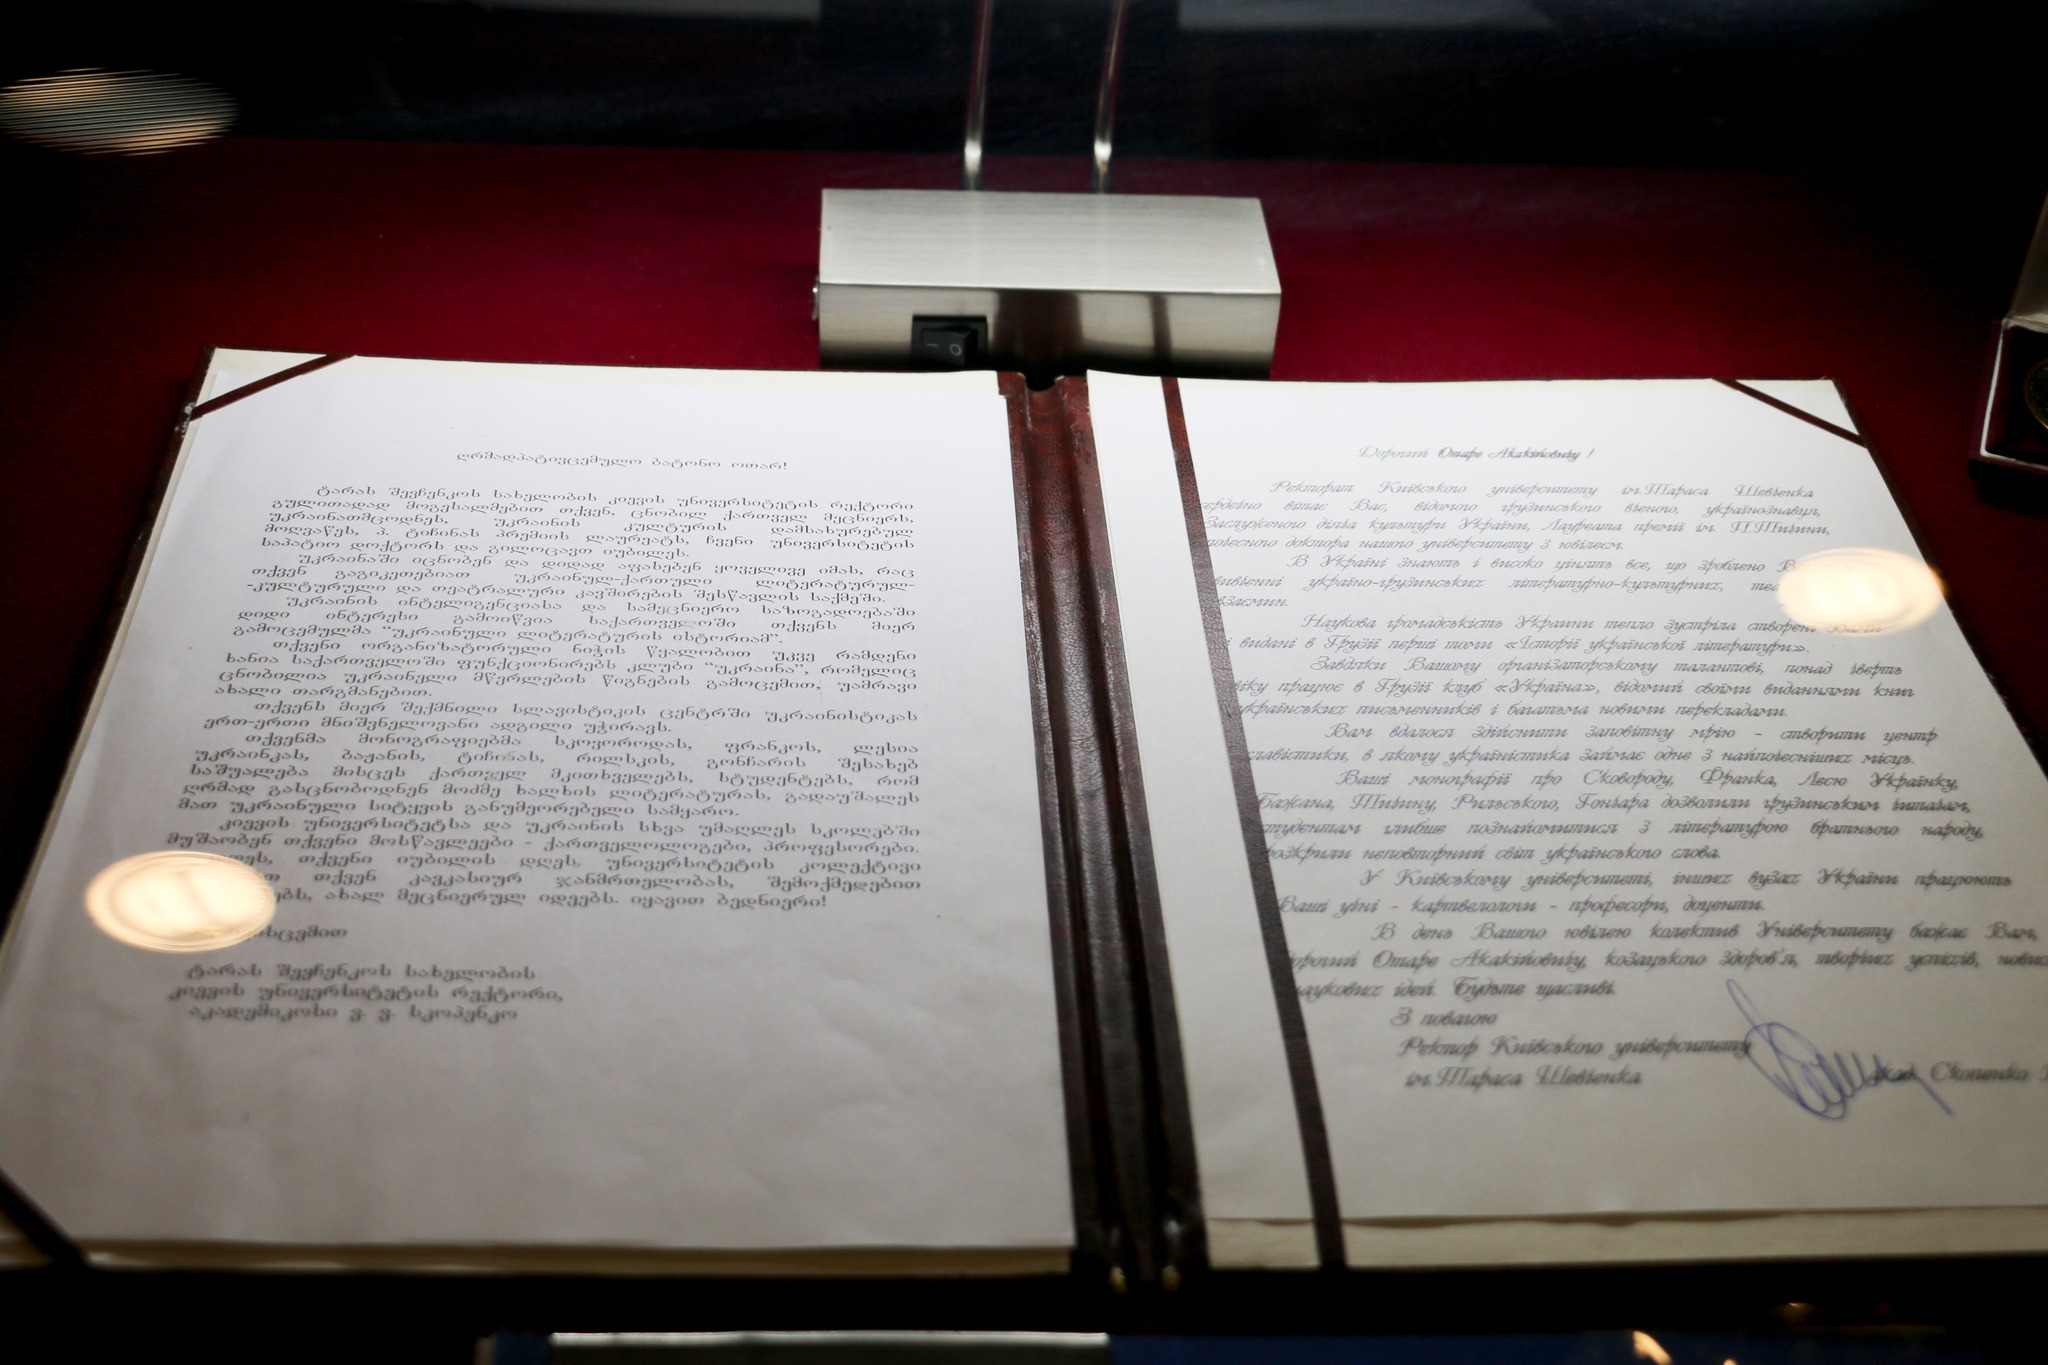 ღრმადპატივცემულო ბატონო ოთარ!
ტარას შევჩენკოს სახელობის კიევის უნივერსიტეტის რექტორი
გულითადად მოგესალმებით თქვენ, ცნობილ ქართველ მეცნიერს,
უკრაინათმცოდნეს, უკრაინის კულტურის დამსახურებულ
მოღვაწეს, პ. ტიჩინას პრემიის ლაურეატს, ჩვენი უნივერსიტეტის
საპატიო დოქტორს და გილოცავთ იუბილეს.
უკრაინაში იცნობენ და დიდად აფასებენ ყოველივე იმას, რაც
თქვენ გაგიკეთებიათ უკრაინულ-ქართული ლიტერატურულ-
-კულტურული და თეატრალური კავშირების შესწავლის საქმეში.
უკრაინის ინტელიგენციასა და სამეცნიერო საზოგადოებაში
დიდი ინტერესი გამოიწვია საქართველოში თქვენს მიერ
გამოცემულმა “უკრაინული ლიტერატურის ისტორიამ”.
თქვენი ორგანიზატორული ნიჭის წყალობით უკვე რამდენი
ხანია საქართველოში ფუნქციონირებს კლუბი “უკრაინა”, რომელიც
ცნობილია უკრაინელი მწერლების წიგნების გამოცემით, უამრავი
ახალი თარგმანებით.
თქვენს მიერ შექმნილი სლავისტიკის ცენტრში უკრაინისტიკას
ერთ-ერთი მნიშვნელოვანი ადგილი უჭირავს.
თქვენმა მონოგრაფიებმა სკოვოროდას, ფრანკოს, ლესია
უკრაინკას, ბაჟანის, ტიჩინას, რილსკის, გონჩარის შესახებ
საშუალება მისცეს ქართველ მკითხველებს, სტუდენტებს, რომ
ღრმად გასცნობოდნენ მოძმე ხალხის ლიტერატურას, გადაუშალეს
მათ უკრაინული სიტყვის განუმეორებელი სამყარო.
კიევის უნივერსიტეტსა და უკრაინის სხვა უმაღლეს სკოლებში
მუშაობენ თქვენი მოსწავლეები - ქართველოლოგები, პროფესორები.
თქვენი იუბილის დღეს, უნივერსიტეტის კოლექტივი
თქვენ კავკასიურ ჯანმრთელობას, შემოქმედებით
ახალ მეცნიერულ იდეებს. იყავით ბედნიერი!
ტარას შევჩენკოს სახელობის
კიევის უნივერსიტეტის რექტორი,
აკადემიკოსი ვ. ვ. სკოპენკო
Дорогий Отаре Акакійовичу !
Ректорат Київського університету ім.Тараса Шевченка
сердечно вітає Вас, відомого грузинського вченого, українознавця,
Заслуженого діяча культури України, Лауреата премії ім. П.Тичини,
почесного доктора нашого університету з ювілеєм.
В Україні знають і високо цінять все, що зроблено
вивченні україно-грузинських літературно-культурних,
взаємин.
Наукова громадськість України тепло зустріла створені Вами
і видані в Грузії перші томи «Історії української літератури».
Завдяки Вашому організаторському талантові, понад чверть
віку працює в Грузії клуб «Україна», відомий своїми виданнями книг
українських письменників і багатьма новими перекладами.
Вам вдалося здійснити заповітну мрію - створити центр
славістики, в якому україністика займає одне з найпочесніших місць.
Ваші монографії про Сковороду, Франка, Лесю Українку,
Бажана, Тичину, Рильського, Гончара дозволили грузинським читачам,
студентам глибше познайомитися з літературою братнього народу,
розкрили неповторний світ українського слова.
У Київському університеті, інших вузах України працюють
Ваші учні - картвелологи - професори, доценти.
В день Вашого ювілею колектив Університету бажає Вам,
дорогий Отаре Акакійовичу, козацького здоров'я, творчих успіхів, нових
наукових ідей. Будьте щасливі.
З повагою
Ректор Київського університету
ім.Тараса Шевченка акад. Скопенко